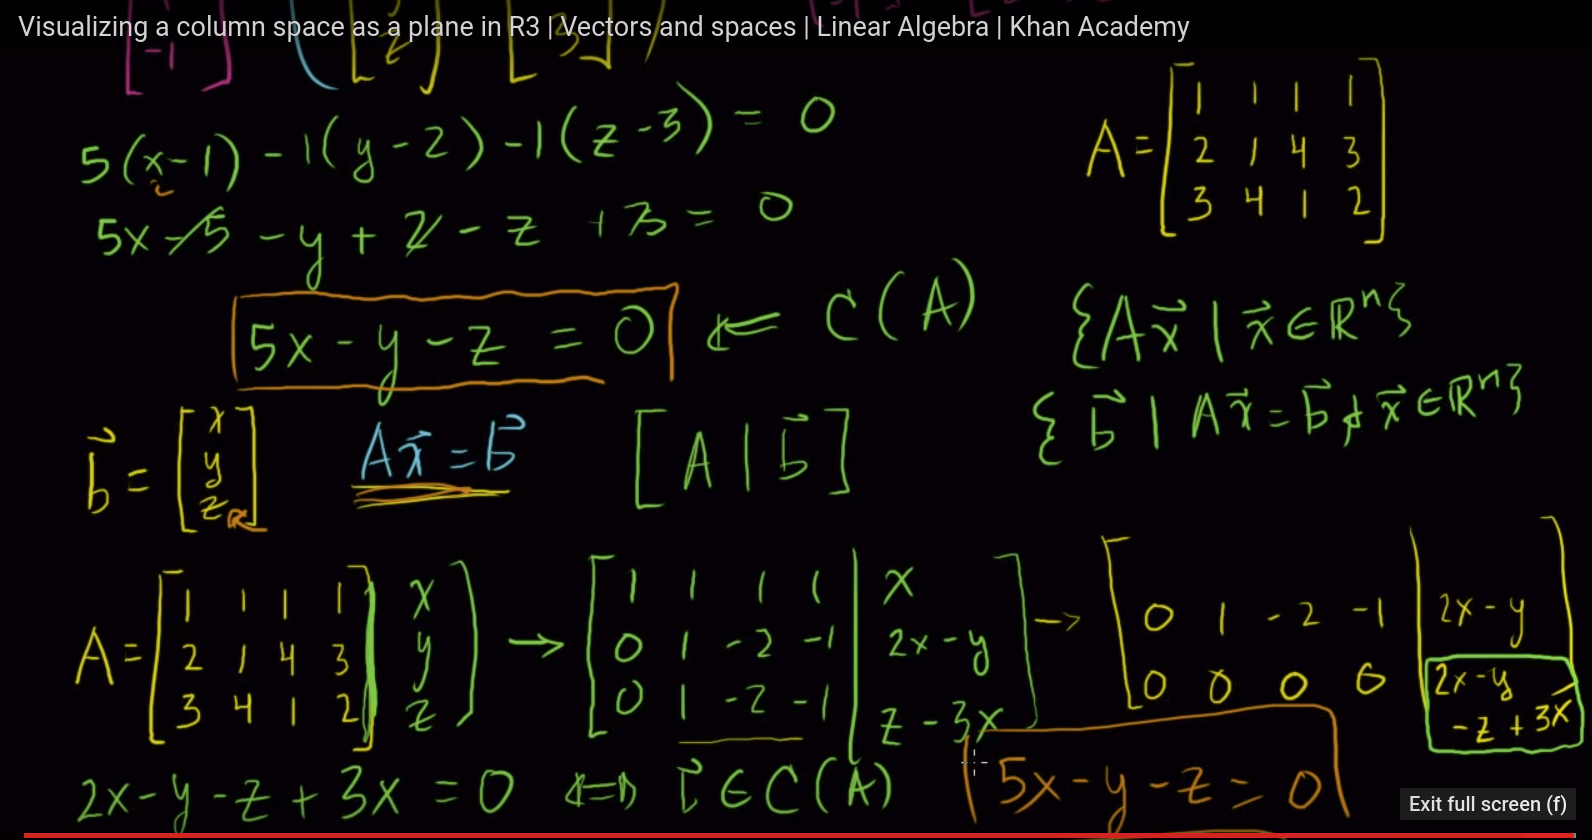 Visualizing a column space as a plane in R3 | Vectors and spaces | Linear Algebra | Khan Academy
-1 2 3
5(x-1) -1(y-2) -1(z-3) = 0
5x-5 -y + 2 - z + 3 = 0
5x - y - z = 0 ⇐ C(A)
A = [1 1 1 1
2 1 4 3
3 4 1 2]
{Ax⃗ | x⃗ ∈ ℝⁿ}
{b⃗ | Ax⃗ = b⃗ & x⃗ ∈ ℝⁿ}
b⃗ = [x
y
z]
Ax⃗ = b⃗
[A | b⃗]
A = [1 1 1 1 | x
2 1 4 3 | y
3 4 1 2 | z]
→ [1 1 1 1 | x
0 1 -2 -1 | 2x-y
0 1 -2 -1 | z-3x]
→ [0 1 -2 -1 | 2x-y
0 0 0 0 | 2x-y
-z+3x]
2x-y-z+3x = 0 ⇔ b⃗ ∈ C(A)
5x-y-z = 0
Exit full screen (f)